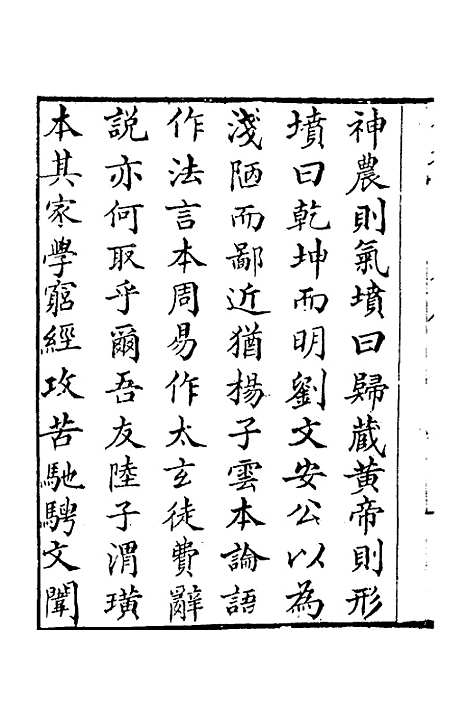 神農則氣墳曰歸藏黄帝則形
墳曰乾坤而明劉文安公以為
淺陋而鄙近猶揚子雲本論語
作法言本周易作太玄徒費辭
説亦何取乎爾吾友陸子渭璜
本其家學窮經攻苦馳騁文聞